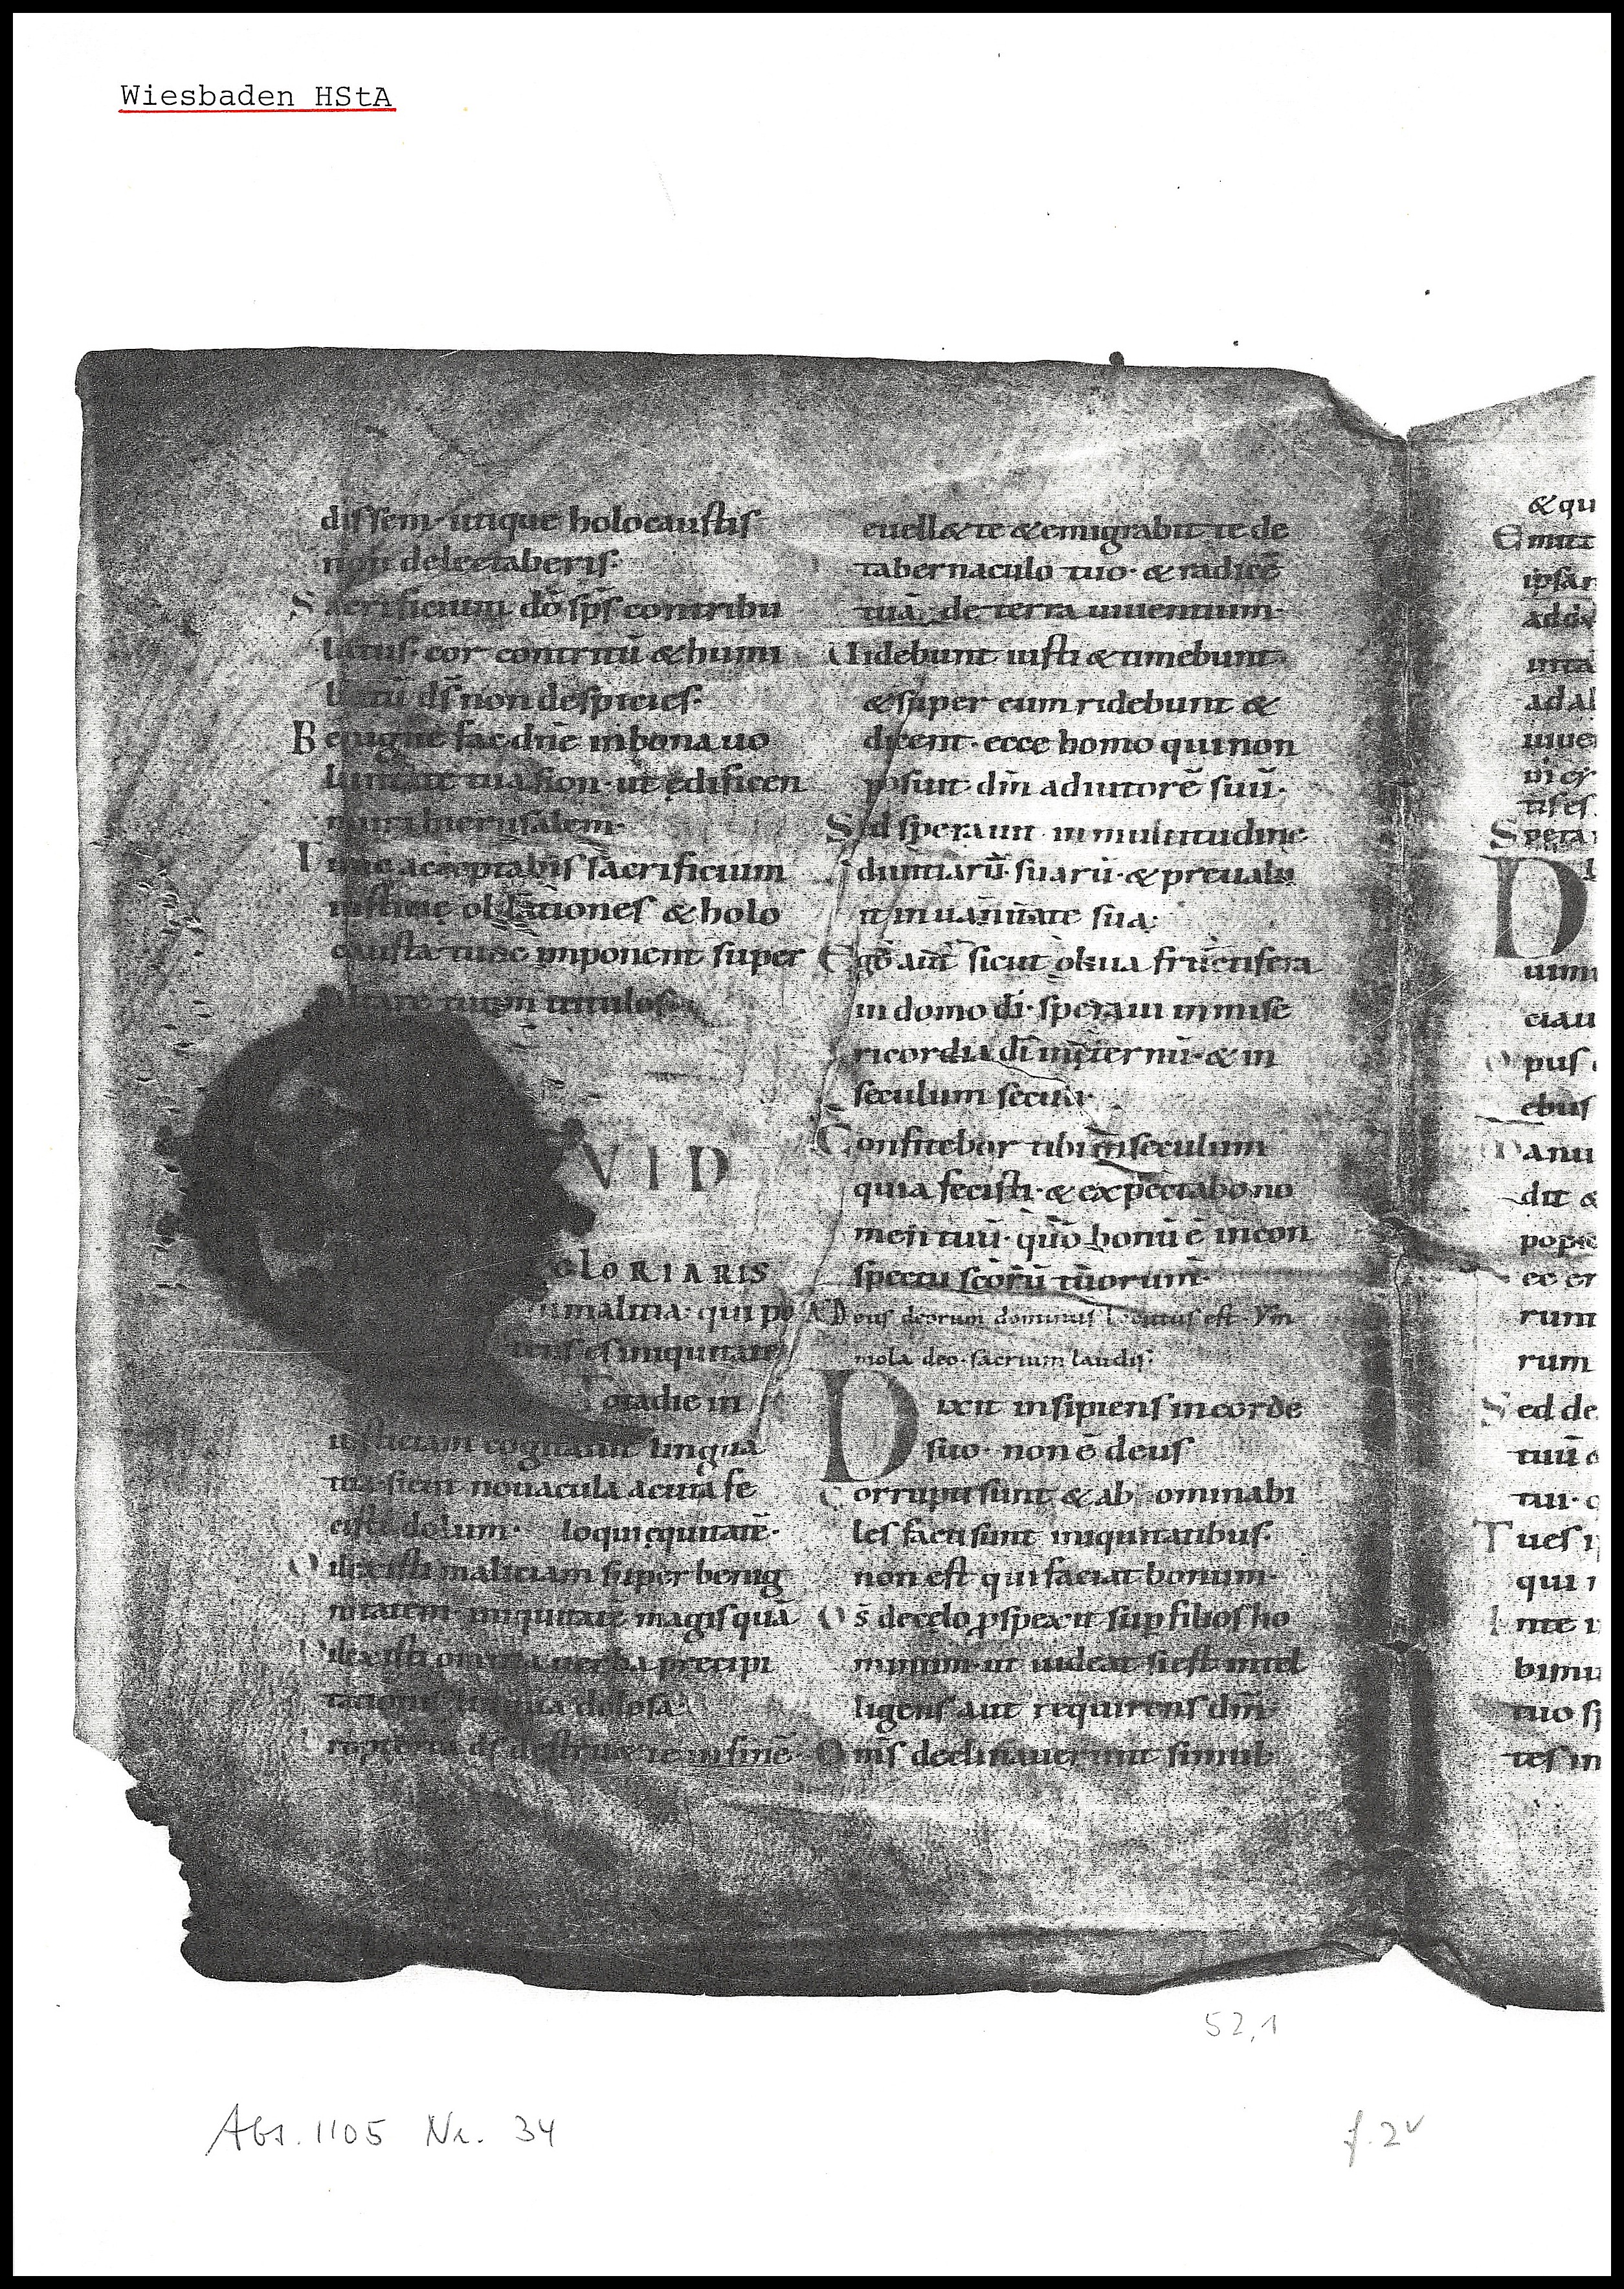 Wiesbaden HStA
dissem utique holocaustis
non delectaberis·
Sacrificium dō sp̄s contribu
latus· cor contritū & humi
liatū ds̄ non despicies·
Benigne fac dn̄e in bona uo
luntate tua sion· ut ędificen
muri hierusalem·
Tunc acceptabis sacrificium
iustitię oblationes & holo
causta tunc imponent super
altare tuum uitulos·
VID
GLORIARIS
in malitia· qui po
tens es iniquitate
Tota die in
iusticiam cogitauit lingua
tua sicut nouacula acuta fe
cisti dolum· loqui ęquitatē·
Dilexisti maliciam super benig
nitatem· iniquitatē magis quā
Dilexisti omnia uerba precipi
tationis lingua dolosa·
Propterea ds̄ destru& te in finē·
euell& te & emigrabit te de
tabernaculo tuo· & radicē
tuā de terra uiuentium·
Uidebunt iusti & timebunt
& super eum ridebunt &
dicent· ecce homo qui non
posuit· dm̄ adiutorē suū·
Sed sperauit in multitudine
diuitiarū· suarū· & preualu
it in uanitate sua·
Ego aut̄ sicut oliua fructifera
in domo dī· speraui in mise
ricordia dī in ęternū· & in
seculum seculi·
Confitebor tibi in seculum
quia fecisti· & expectabo no
men tuū· qūo bonū ē in con
spectu scōrū tuorum·
AD eus deorum dominus locutus est· Ym
mola deo· sacrium laudis·
Dixit insipiens in corde
suo· non ē deus
Corrupti sunt & ab ominabi
les facti sunt iniquitatibus·
non est qui faciat bonum·
Ds̄ de celo ꝓspexit sup filios ho
minum· ut uideat si est intel
ligens aut requirens dm̄·
Om̄s declinauerunt simul
&qu
Emitt
ipsa
addux
ad al
uiue
tis es
Spera
D
uim
ciau
Opus
ebus
Danu
dit &
popu
ec er
rum
rum
Sed de
tuū
tui·
Tu es
qui
In te
bimu
tuo
tes in
52,1
Abt. 1105 Nr. 34
f. 2v